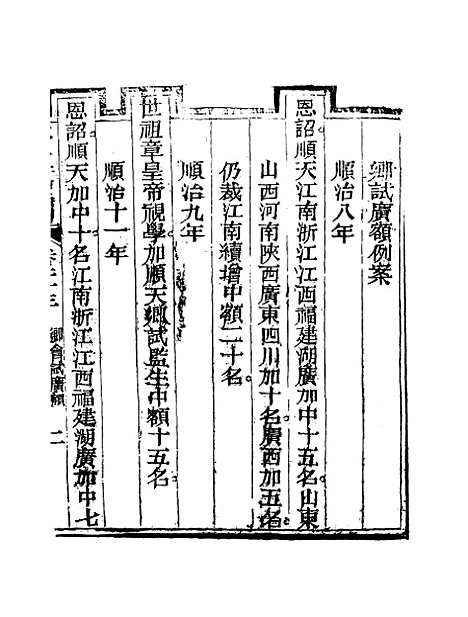 鄉試廣額例案
順治八年
恩詔順天江南浙江江西福建湖廣加中十五名山東
山西河南陝西廣東四川加十名廣西加五名
仍裁江南續增中額二十名
順治九年
世祖章皇帝視學加順天鄉試監生中額十五名
順治十一年
恩詔順天加中十名江南浙江江西福建湖廣加中七
鄉會試廣額 二